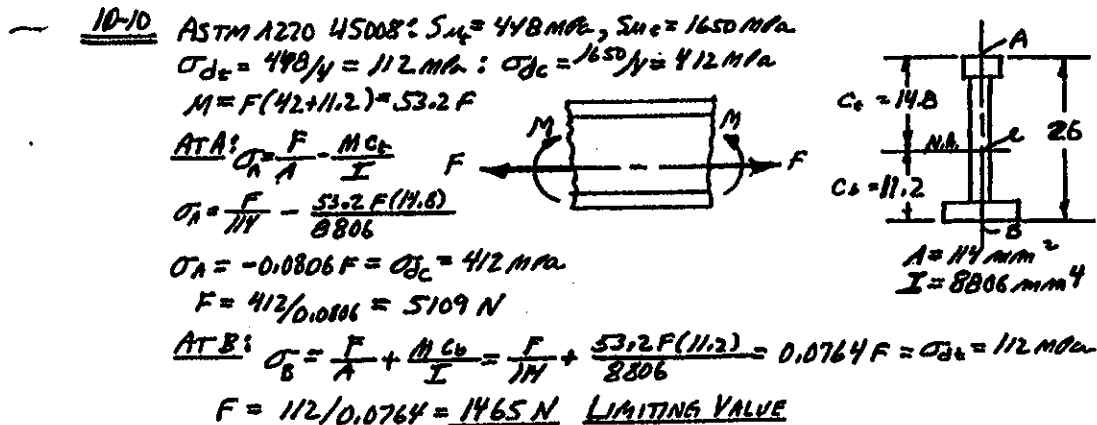 10-10 ASTM A220 45008: Sut = 448 MPa, Suc = 1650 MPa
σdt = 448/4 = 112 MPa : σdc = 1650/4 = 412 MPa
M = F(42+11.2) = 53.2 F
AT A: σA = F/A - M Ct/I
σA = F/114 - 53.2 F(14.8)/8806
σA = -0.0806 F = σdc = 412 MPa
F = 412/0.0806 = 5109 N
AT B: σB = F/A + M Cb/I = F/114 + 53.2 F(11.2)/8806 = 0.0764 F = σdt = 112 MPa
F = 112/0.0764 = 1465 N LIMITING VALUE
F M M F
A
Ct = 14.8
26
N.A.
Cb = 11.2
B
A = 114 mm²
I = 8806 mm⁴